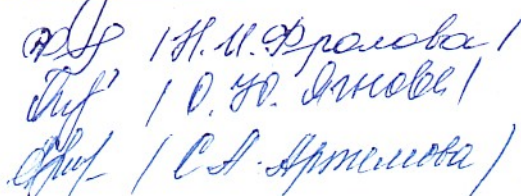 /Н.И.Фролова/
/О.Ю. Ягнова/
/С.А. Артемова/